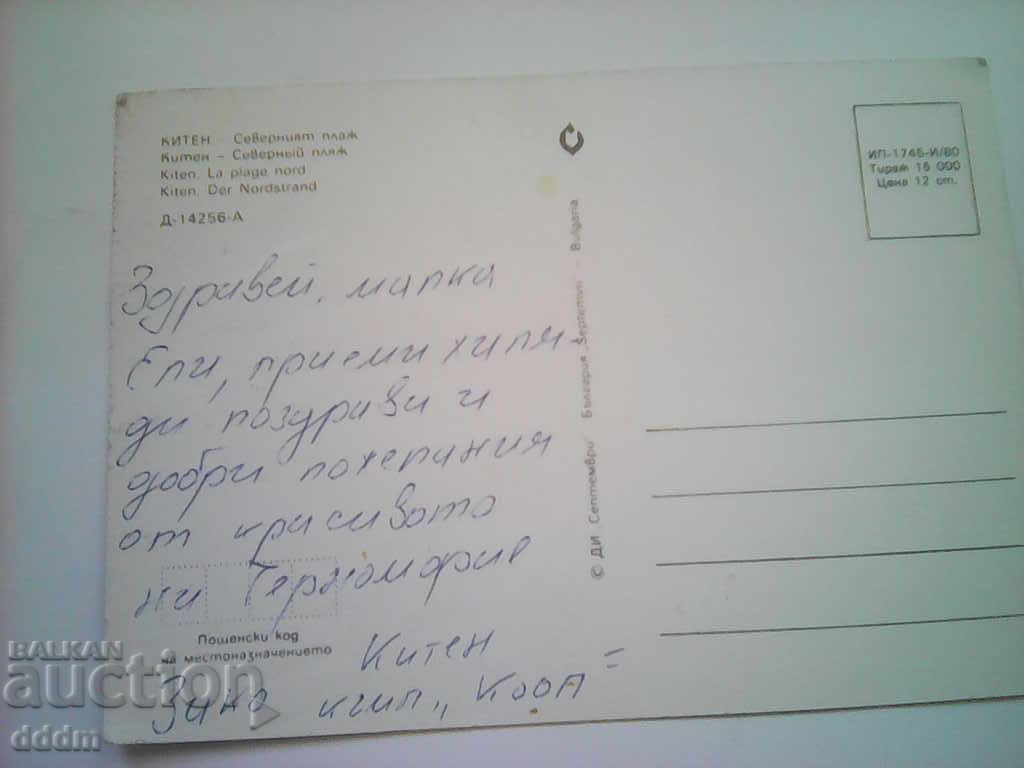 КИТЕН - Северният плаж
Китен - Северный пляж
Kiten. La plage nord
Kiten. Der Nordstrand
Д-14256-А
ИП-1745-И/80
Тираж 15 000
Цена 12 ст.
Здравей, малка
Ели, приеми хиля-
ди поздрави и
добри пожелания
от красивото
ни Черноморие
Китен
къмп. „Кооп"
Пощенски код
на местоназначението
© ДИ „Септември" България „Septemvri" - Bulgaria
BALKAN
auction
dddm